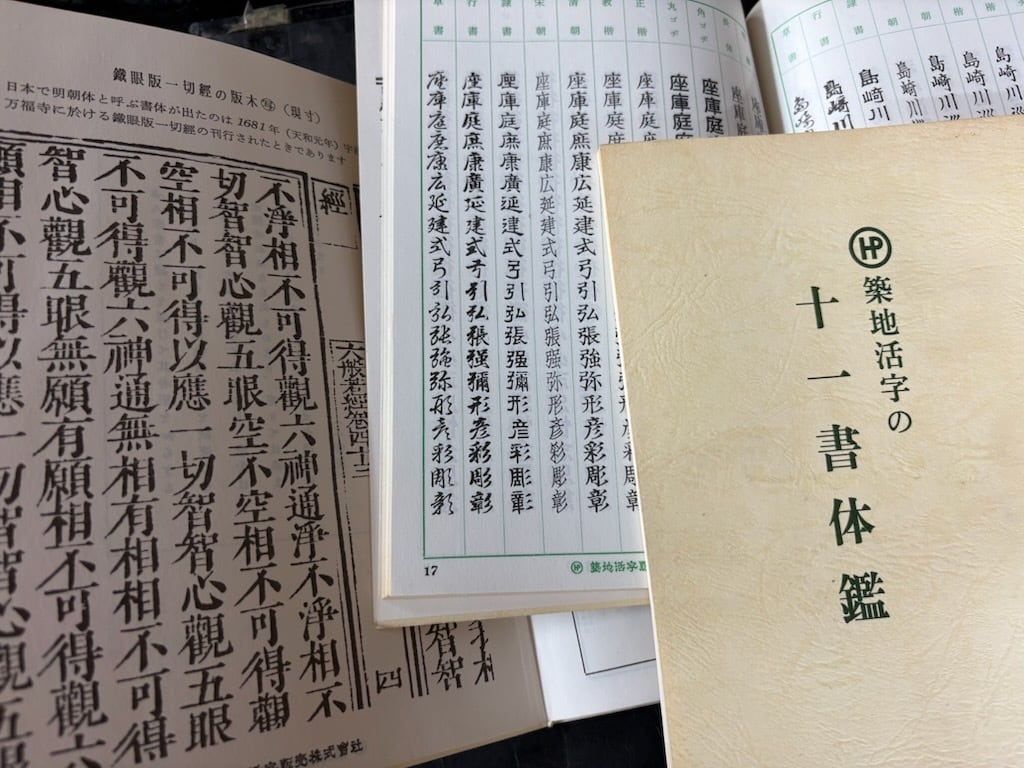 鐵眼版一切經の版木 (現寸)
日本で明朝体と呼ぶ書体が出たのは 1681年 (天和元年)
万福寺に於ける鐵眼版一切經の刊行されたときであります
不淨相不可得觀六神通淨不淨相不
切智智心觀五眼空不空相不可得觀
空相不可得以應一切智智心觀五眼
不可得觀六神通無相有相相不可得
智心觀五眼無願有願相不可得觀六
願相不可得以應一切智智心觀五
般若經卷四十三
四
智智
販売株式會社
角ゴヂ
丸ゴヂ
正楷
教楷
清朝
宋朝
隷書
行書
草書
座庫庭
座庫庭
座庫庭庶康広延建式弓引弘張強弥形彦彩彫彰
座庫庭庶康広延建式弓引弘張强弥形彦彩彫彰
座庫庭庶康廣延建式弓引弘張强彌形彦彩彫彰
座庫庭庶康廣延建式弓引弘張强彌形彦彩彫彰
座庫庭庶康広延建式弓引弘張強弥形彦彩彫彰
17
HP 築地活字
楷
楷
朝
朝
隷書
行書
草書
島崎川
島崎川
島崎川
島崎川
島崎川
島崎
HP 築地活字の
十一書体鑑